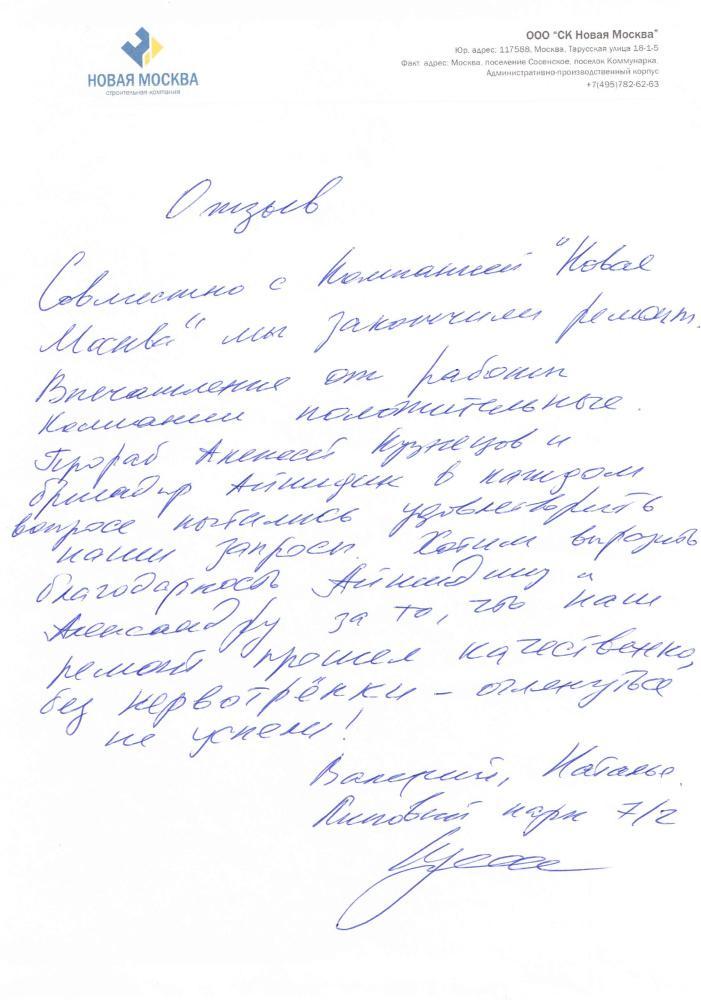 НОВАЯ МОСКВА
строительная компания
ООО "СК Новая Москва"
Юр. адрес: 117588, Москва, Тарусская улица 18-1-5
Факт. адрес: Москва, поселение Сосенское, поселок Коммунарка,
Административно-производственный корпус
+7(495)782-62-63
Отзыв
Совместно с Компанией "Новая
Москва" мы закончили ремонт.
Впечатление от работы
Компании положительные.
Прораб Алексей Кузнецов и
бригадир Айнидин в каждом
вопросе пытались удовлетворить
наши запросы. Хотим выразить
благодарность Айнидину и
Александру за то, что наш
ремонт прошел качественно,
без нервотрёпки – оглянуться
не успели!
Валерий, Наталья.
Липовый парк 7/2